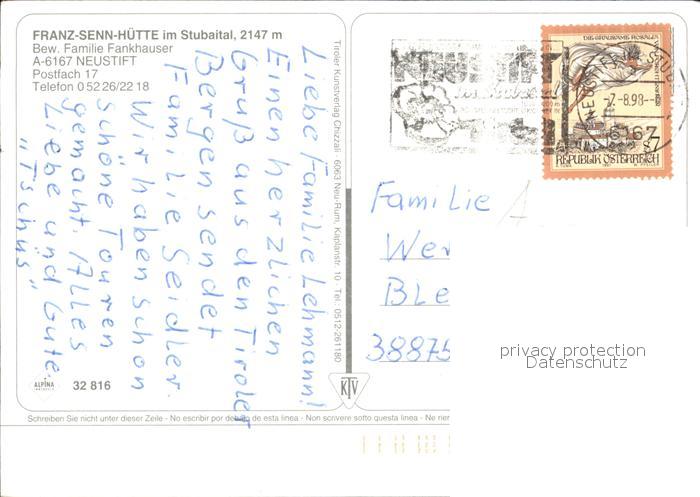 FRANZ-SENN-HÜTTE im Stubaital, 2147 m
Bew. Familie Fankhauser
A-6167 NEUSTIFT
Postfach 17
Telefon 0 52 26/22 18
Liebe Familie Lehmann!
Einen herzlichen
Gruß aus den Tiroler
Bergen sendet
Familie Seidler.
Wir haben schon
schöne Touren
gemacht. Alles
Liebe und Gute.
"Tschüs"
Tiroler Kunstverlag Chizzali · 6063 Neu-Rum, Kaplanstr. 10 · Tel. 0512-261180
ALPINA
32 816
KTV
Schreiben Sie nicht unter dieser Zeile - No escribir por debajo de esta linea - Non scrivere sotto questa linea - Ne rien
DIE GRAUSAME ROSALIA
-7.-8.98--
6167
S7
REPUBLIK ÖSTERREICH
Familie
Wer
Ble
38875
privacy protection
Datenschutz